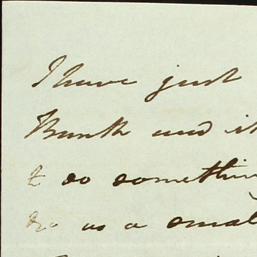 I have just
Bank and it
to do something
as a small